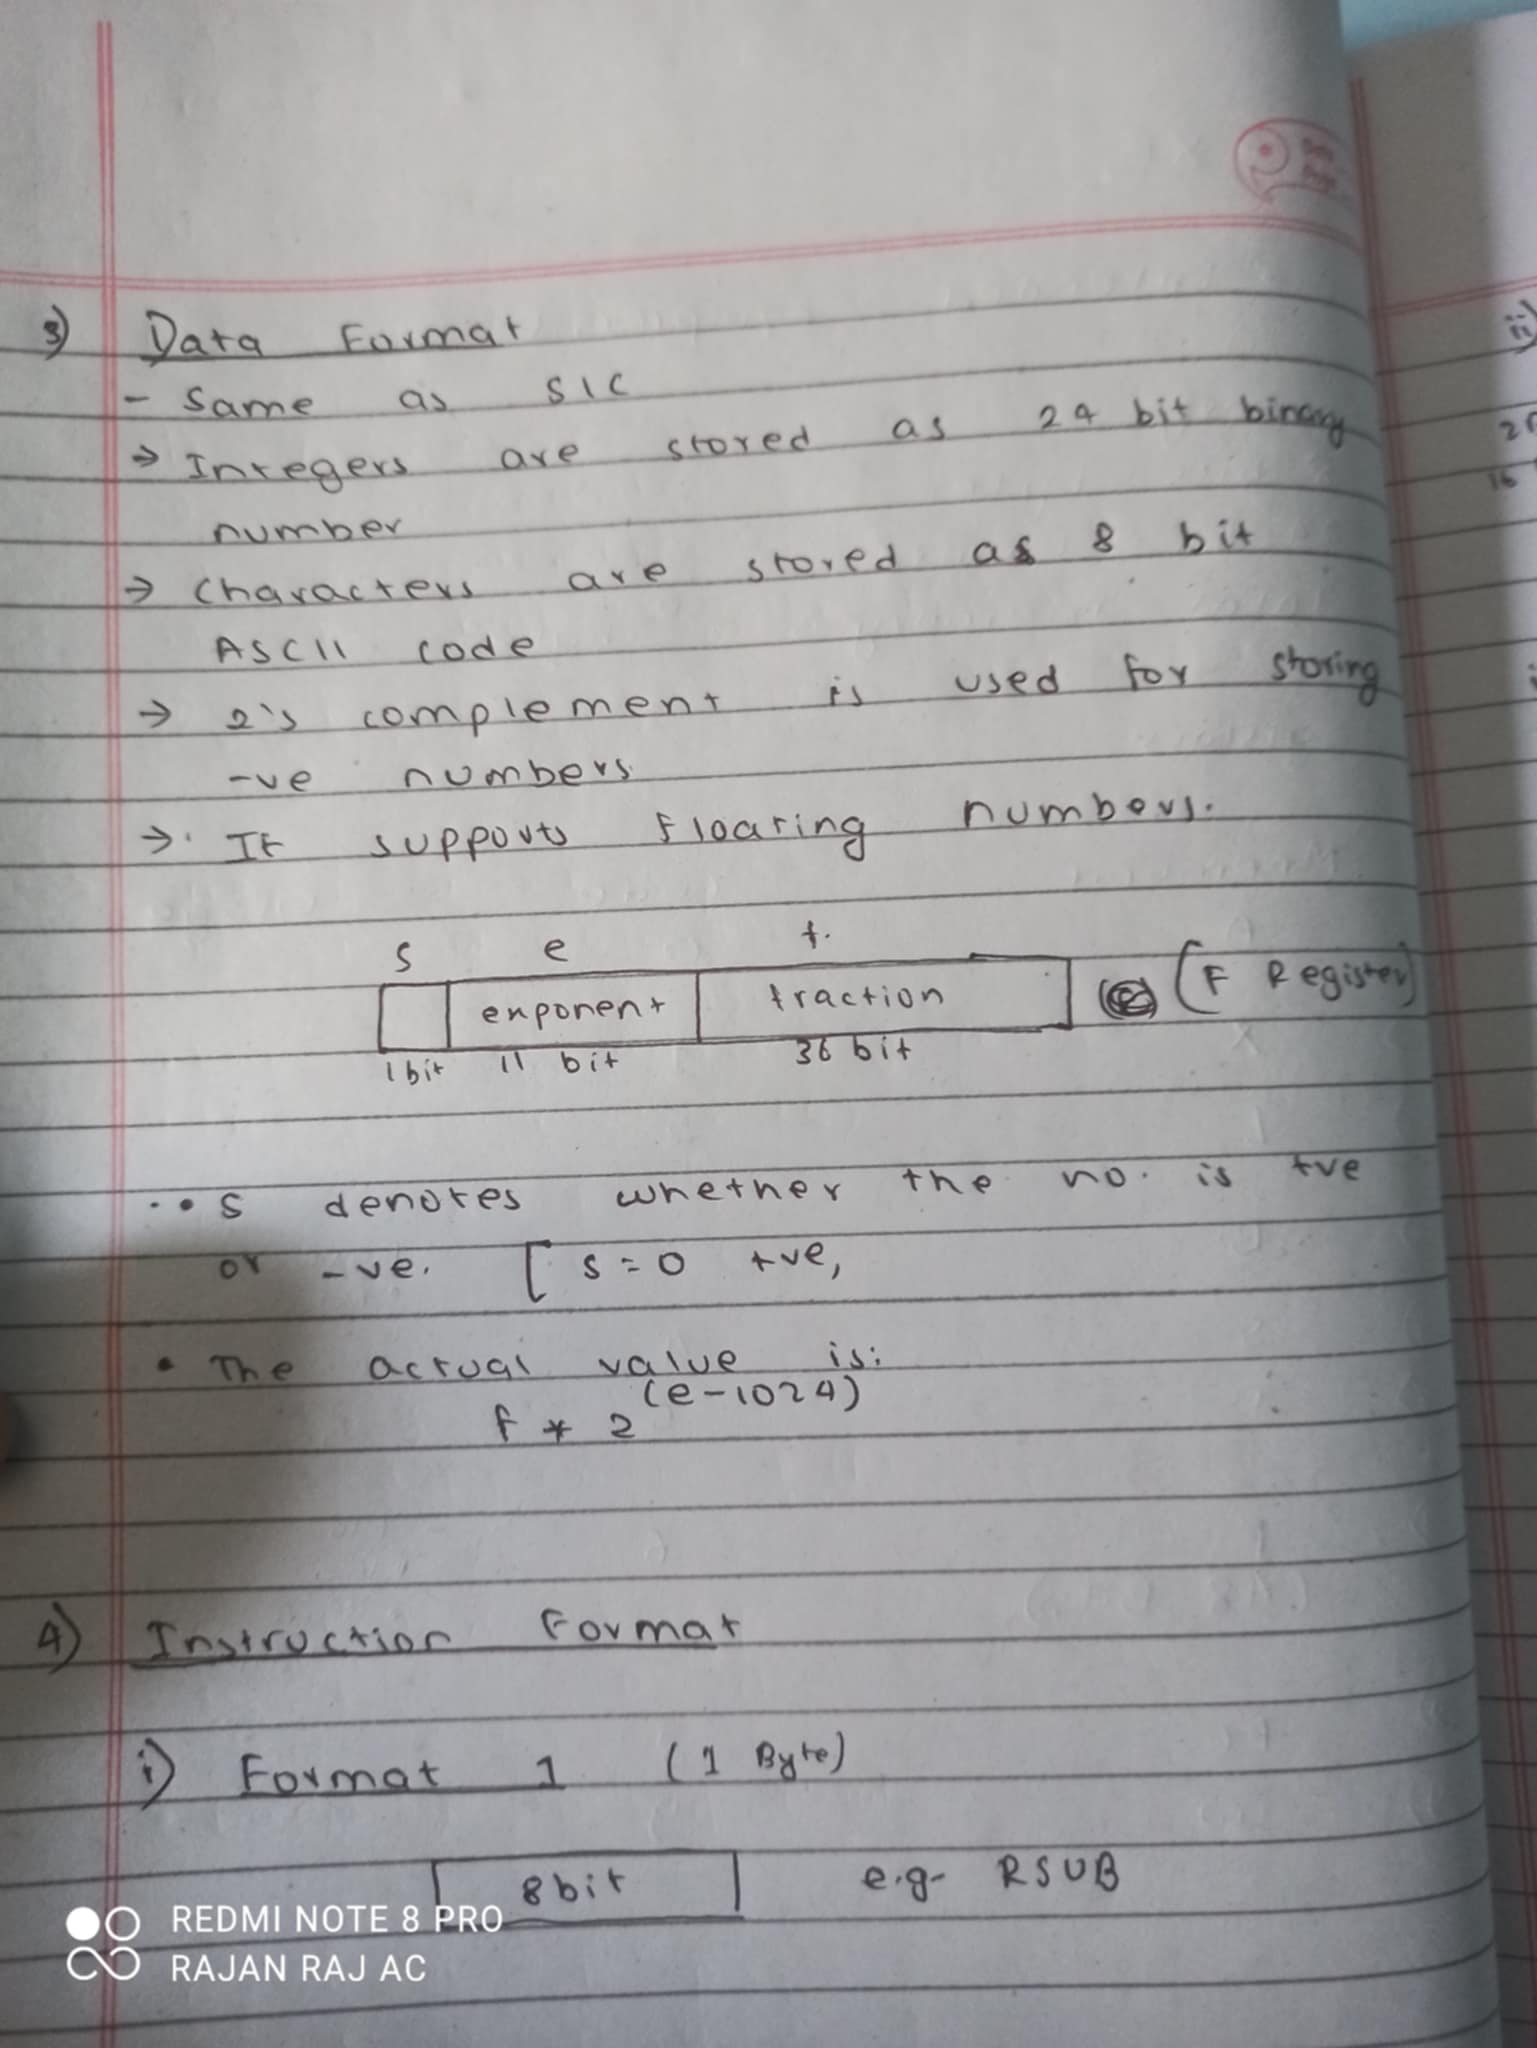 3) Data Format
- Same as SIC
→ Integers are stored as 24 bit binary
number
→ Characters are stored as 8 bit
ASCII code
→ 2's complement is used for storing
-ve numbers
→ It supports floating numbers.
s e f
exponent fraction (F Register)
1 bit 11 bit 36 bit
• s denotes whether the no. is +ve
or -ve. [ s = 0 +ve,
• The actual value is:
f * 2 (e-1024)
4) Instruction Format
i) Format 1 (1 Byte)
8 bit e.g- RSUB
ii)
REDMI NOTE 8 PRO
RAJAN RAJ AC